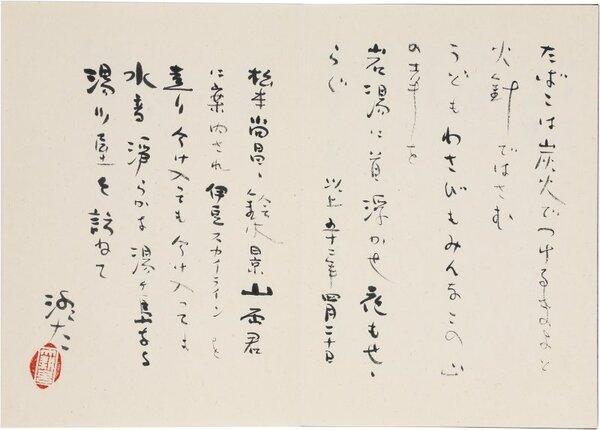 たばこは炭火でつける
火針ではさむ
うどもわさびもみんなこの山
の
岩湯に首浮かせ花もせゝ
らぐ　以上　五十二年四月二十日
松本尚昌、鈴木景山両君
に案内され伊豆スカイラインを
走り分け入っても分け入っても
水音浄らかな湯ヶ島なる
湯川屋を訪ねて